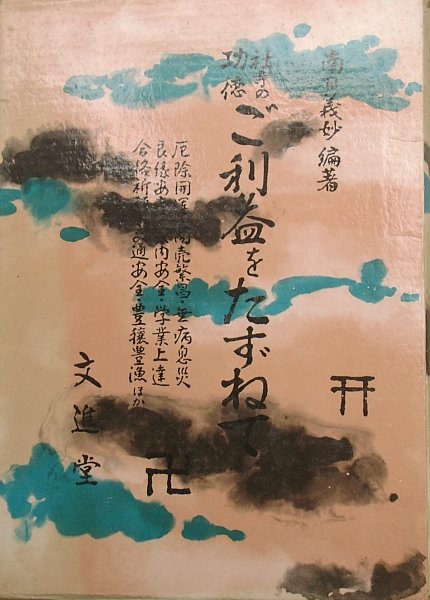 南 義妙 編著
社寺の
功徳
ご利益をたずねて
厄除開運・商売繁昌・無病息災
良縁安産・家内安全・学業上達
合格祈願・交通安全・豊穣豊漁ほか
文進堂
卍